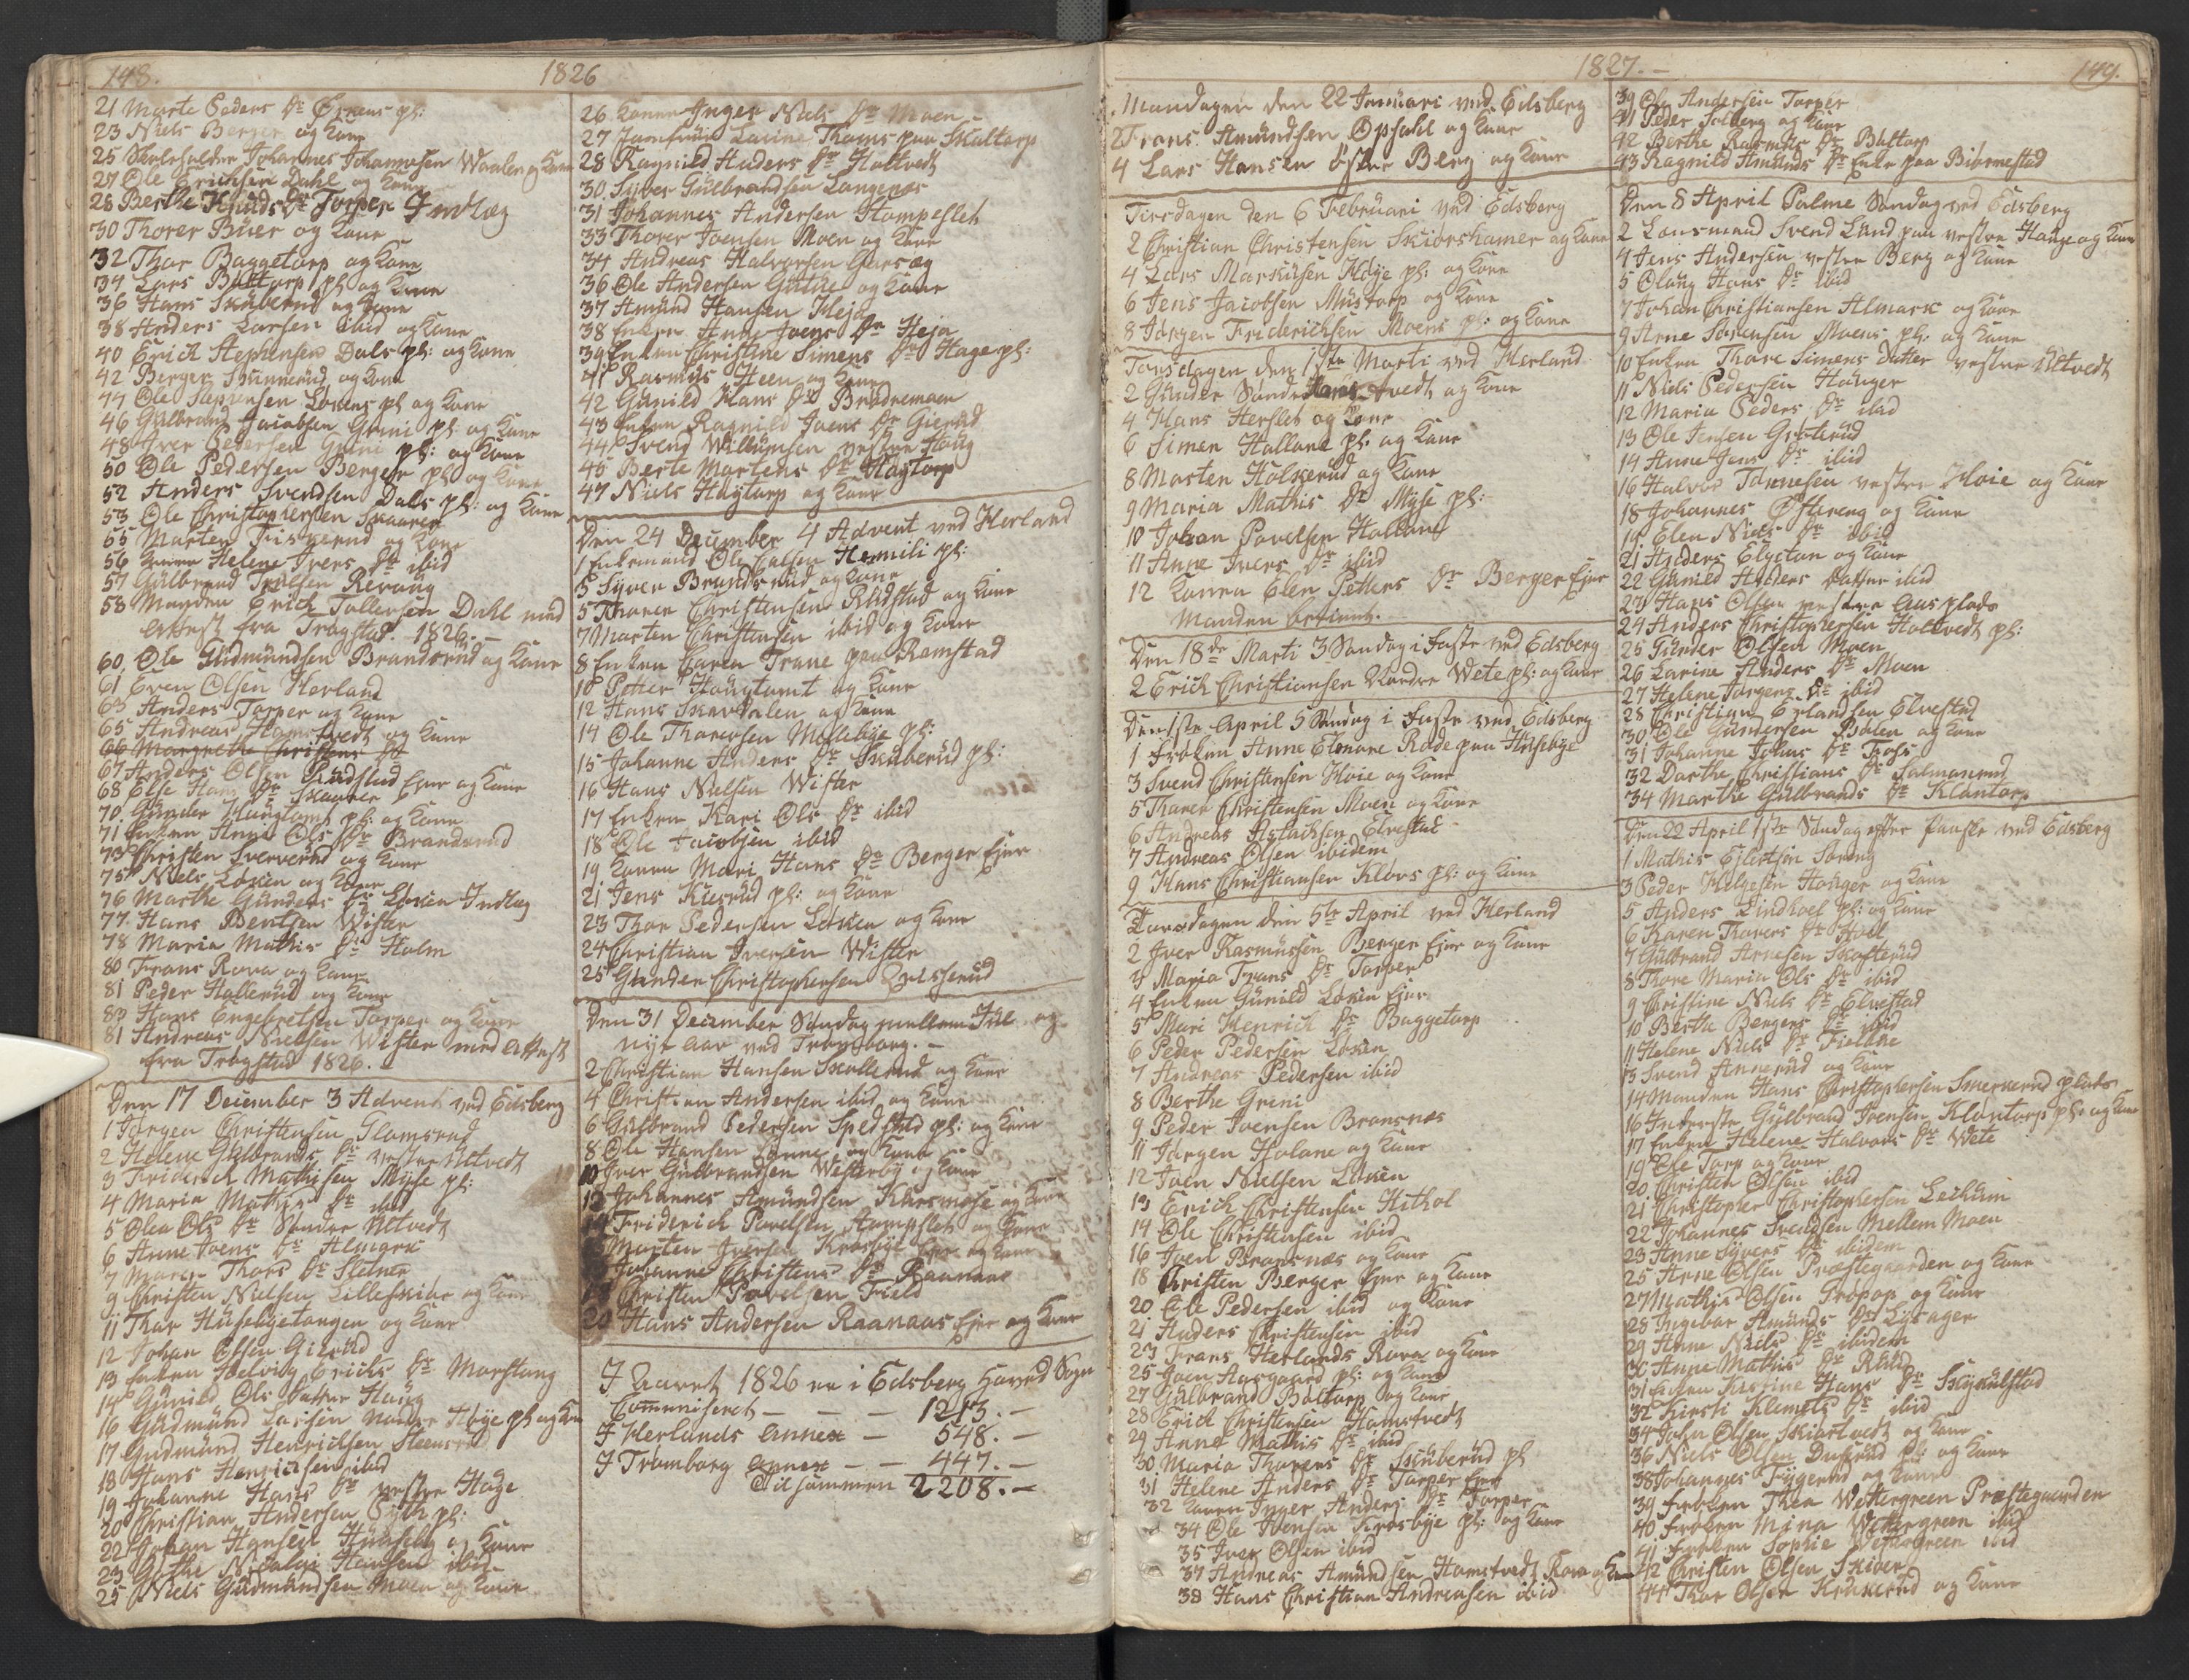 148.
1826
21 Marte Peders Dr Øsnæs pl:
23 Niels Berger og Kone
25 Skoleholder Johannes Johannesen Waaler og Kone
27 Ole Erichsen Dahl og Kone
28 Berthe Knuds Dr Torper Indlæg
30 Thorer Buer og Kone
32 Thor Baggetorp og Kone
34 Lars Bøltorp pl og Kone
36 Hans Skuberud og Kone
38 Anders Larsen ibid og Kone
40 Erich Stephensen Dals pl: og Kone
42 Berger Skinnerud og Kone
44 Ole Stephensen Løkens pl og Kone
46 Gulbrand Jacobsen Greni pl: og Kone
48 Iver Pedersen Greni pl: og Kone
50 Ole Pedersen Berger pl og Kone
52 Anders Svendsen Dals pl: og Kone
53 Ole Christophersen Skaarer
55 Marten Fiskerud og Kone
56 Konen Helene Ivers Dr ibid
57 Gulbrand Revaug
58 Manden Erich Tollefsen Dahl med
Attest fra Trøgstad. 1826.-
60. Ole Gudmundsen Brandsrud og Kone
61 Even Olsen Herland
63 Anders Torper og Kone
65 Andreas Hamstvedt og Kone
66 Margrethe Christens Dr
67 Anders Olsen Rudstad Ejer og Kone
68 Else Hans Dr Skaarer
70. Gunder Haugtomt pl: og Kone
71 Enken Anne Ols Dr Brandsrud
73 Christen Sververud og Kone
75 Niels Løken og Kone
76 Marthe Gunders Dr Løken Indlæg
77. Hans Bentsen Wister
78 Maria Mathis Dr Holm
80 Frans Rova og Kone
81 Peder Hollerud og Kone
83 Hans Engebretsen Torper og Kone
81 Andreas Nielsen Wister med Attest
fra Trøgstad 1826.
Den 17 December 3 Advent ved Edsberg
1 Jørgen Christensen Glomsrud
2 Helene Gulbrands Dr vestre Utvedt
3 Friderich Mathisen Myse pl:
4 Maria Mathis Dr ibid
5 Olea Ols Dr Søndre Utvedt
6 Anne Joens Dr Almark
7 Maren Thors Dr Sletner
9 Christen Nielsen Lilleskiør og Kone
11 Thor Husebyetangen og Kone
12 Johan Olsen Gierud
13 Enken Hedevig Erichs Dr Morstang
14 Gunild Ols Datter Haug
16 Gudmund Larsen Nordre Høye pl og Kone
17 Gudmund Henrichsen Steensrud
18 Hans Henrichsen ibid
19 Johanne Hans Dr vestre Hage
20 Christian Andersen pl:
22 Johan Hansen Huuseby og Kone
23 Grethe Nicolai Hansen ibid
25 Niels Gudmundsen Moen og Kone
26. Konen Inger Niels Dr Moen
27 Jomfrue Lovine Thoms paa Skaltorp
28 Ragnild Anders Dr Holtvedt
30 Syver Gulbrandsen Langenæs
31 Johannes Andersen Stompeflet
33 Thorer Joensen Moen og Kone
34 Andreas Halvorsen Garsæg
36 Ole Andersen Guthe og Kone
37 Amund Hansen Heja
38 Enken Anne Joens Dr Heja
39 Enken Christine Simens Dr Hage pl:
41 Rasmus Heen og Kone
42 Gunild Hans Dr Brødremoen
43 Enken Ragnild Joens Dr Gierud
44 Svend Willumsen vestre Haug
45 Berte Martens Dr Høytorp
47 Niels Høytorp og Kone
Den 24 December 4 Advent ved Herland
1 Enkemand Ole Hermili pl:
3 Syver Brandsrud og Kone
5 Thorer Christensen Rudstad og Kone
7 Marten Christensen ibid og Kone
8 Enken Karen Trane paa Ramstad
10 Petter Haugtomt og Kone
12 Hans Skardalen og Kone
14 Ole Thoresen Møllebye pl:
15 Johanne Anders Dr Skuberud pl:
16 Hans Nielsen Wister
17 Enken Kari Ols Dr ibid
18 Ole Jacobsen ibid
19 Konen Mari Hans Dr Berger Ejer
21 Jens Kiesrud pl: og Kone
23 Thor Pedersen Løken og Kone
24 Christian Iversen Wister
25 Gunder Christophersen Qvisserud
Den 31 December Søndag mellem Jul og
nye Aar ved Trømborg.-
2 Christian Hansen Skollerud og Kone
4 Christian Andersen ibid og Kone
6 Gulbrand Pedersen Spedsrud pl: og Kone
8 Ole Hansen Lønne og Kone
10 Iver Gulbrandsen Westerby og Kone
12 Johannes Amundsen Kørsmøse og Kone
14 Friderich Povelsen og Kone
Marten Iversen Krosbye Ejer og Kone
Johanne Christens Dr Raanaas
18 Christen Povelsen Field
20 Hans Andersen Raanaas Ejer og Kone
I Aaret 1826 er i Edsberg Hoved Sogn
Communiceret - - - 1213.-
I Herlands Annex - 548.-
I Trømborg Annex - - 447.-
Tilsammen 2208.-
1827.-
149.
Mandagen den 22 Januari ved Edsberg
2 Frans Amundsen Opsahl og Kone
4 Lars Hansen Østre Berg og Kone
Tirsdagen den 6 Februari ved Edsberg
2 Christian Christensen Skiørshamer og Kone
4 Lars Marskusen Høye pl: og Kone
6 Jens Jacobsen Mustorp og Kone
8 Jørgen Friderichsen Moens pl: og Kone
Torsdagen den 1ste Marti ved Herland
2 Gunder Søndre Hamstvedt og Kone
4 Hans Hersleb og Kone
6 Simen Hallane pl: og Kone
8 Marten Holkerud og Kone
9 Maria Mathis Dr Myse pl:
10 Johan Povelsen Holland
11 Anne Ivers Dr ibid
12 Konen Elen Petters Dr Berger Ejer
Manden
Den 18de Marti 3 Søndag i Faste ved Edsberg
2 Erich Christiansen Nordre Wete pl: og Kone
Den 1ste April 5 Søndag i Faste ved Edsberg
1 Frøken Anne Elenore Rode paa Husebye
3 Svend Christensen Høie og Kone
5 Thorer Christensen Moen og Kone
6 Andreas Aslachsen Elvestad
7 Andreas Olsen ibidem
9 Hans Christiansen Kløvs pl: og Kone
Torsdagen den 5te April ved Herland
2 Iver Rasmussen Berger Ejer og Kone
3 Maria Frans Dr Torper
4 Enken Gunild Løken Ejer
5 Mari Henrich Dr Baggetorp
6 Peder Pedersen Løken
7 Andreas Pedersen ibid
8 Berthe Greni
9 Peder Ivensen Bransnæs
11 Jørgen Holane og Kone
12 Iven Nielsen Løken
13 Erich Christensen Hithol
14 Ole Christensen ibid
16 Iven Bransnæs og Kone
18 Christen Berger Ejer og Kone
20 Ole Pedersen ibid og Kone
21 Anders Christensen ibid
23 Frans Herlands Rova og Kone
25 Joen Aasgaard pl: og Kone
27 Gulbrand Boltorp og Kone
28 Erich Christensen Hamstvedt
29 Anne Mathis Dr ibid
30 Maria Thorers Dr Skuberud pl
31 Helene Anders Dr Torper Ejer
32 Konen Inger Anders Dr Torper
34 Ole Hensen Krosbye pl: og Kone
35 Iver Olsen ibid
37 Andreas Amundsen Hamstvedt Rova og Kone
38 Hans Christian Andreasen ibid
39 Ole Andersen Torper
41 Peder Solberg og Kone
42 Berthe Rasmus Dr Boltorp
43 Ragnild Amunds Dr Enke paa Biørnestad
Den 8 April Palme Søndag ved Edsberg
2 Lensmand Svend Lund paa vestre Hauge og Kone
4 Jens Andersen vestre Berg og Kone
5 Olaug Hans Dr ibid
7 Johan Christiansen Almark og Kone
9 Arne Sørensen Moens pl: og Kone
10 Enken Thore Simens Datter vestre Utvedt
11 Niels Pedersen Hauger
12 Maria Peders Dr ibid
13 Ole Jensen Grøterud
14 Anne Jens Dr ibid
16 Halvor Tønnesen vestre Høie og Kone
18 Johannes Østereng og Kone
19 Elen Niels Dr ibid
21 Anders Elgetun og Kone
22 Gunild Anders Datter ibid
23 Hans Olsen vestre Aas plads
24 Anders Christophersen Holtvedt pl:
25 Gunder Olsen Moen
26 Larine Anders Dr Moen
27 Helene Jørgens Dr ibid
28 Christian Erlandsen Elvestad
30 Ole Gundersen Bølen og Kone
31 Johanne Johns Dr
32 Dorthe Christians Dr Salmonrud
34 Marthe Gulbrands Dr Kløntorp
Den 22 April 1ste Søndag efter Paaske ved Edsberg
1 Mathis Ejlertsen Søreng
3 Peder Helgesen Hauger og Kone
5 Anders Lindhoel pl: og Kone
6 Karen Thorers Dr Hoel
7 Gulbrand Arnesen Skofterud
8 Thore Maria Ols Dr ibid
9 Christine Niels Dr Elvestad
10 Berthe Bergers Dr ibid
11 Helene Niels Dr Fieldhe
13 Svend Annerud og Kone
14 Manden Hans Christophersen Smerkerud plads
16 Inderste Gulbrand Svensen Klontorp pl: og Kone
17 Enken Helene Halvors Dr Wete
19 Ole Torp og Kone
20 Christen Olsen ibid
21 Christopher Christophersen Leikum
22 Johannes Svendsen Mellem Moen
23 Anne Syvers Dr ibidem
25 Arne Olsen Præstegaarden og Kone
27 Mathis Olsen Fropop og Kone
28 Ingebor Amunds Dr Lysager
29 Anne Niels Dr ibidem
30 Anne Mathis Dr Ruud
31 Enken Kirstine Hans Dr Skyaulstad
32 Kirsti Klemets Dr ibid
34 John Olsen Skiortvedt og Kone
36 Niels Olsen Dusrud pl: og Kone
38 Johannes Fygerud og Kone
39 Frøken Thea Wettergreen Præstegaarden
40 Frøken Mina Wettergreen ibid
41 Frøken Sophie Wettergreen ibid
42 Christen Olsen Skiør
44 Thor Olsen Krakerud og Kone